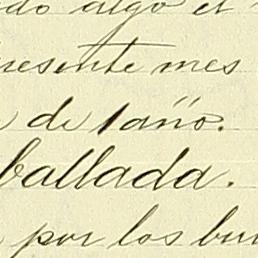 do algo el
presente mes
de 1año.
ballada.
por los bu